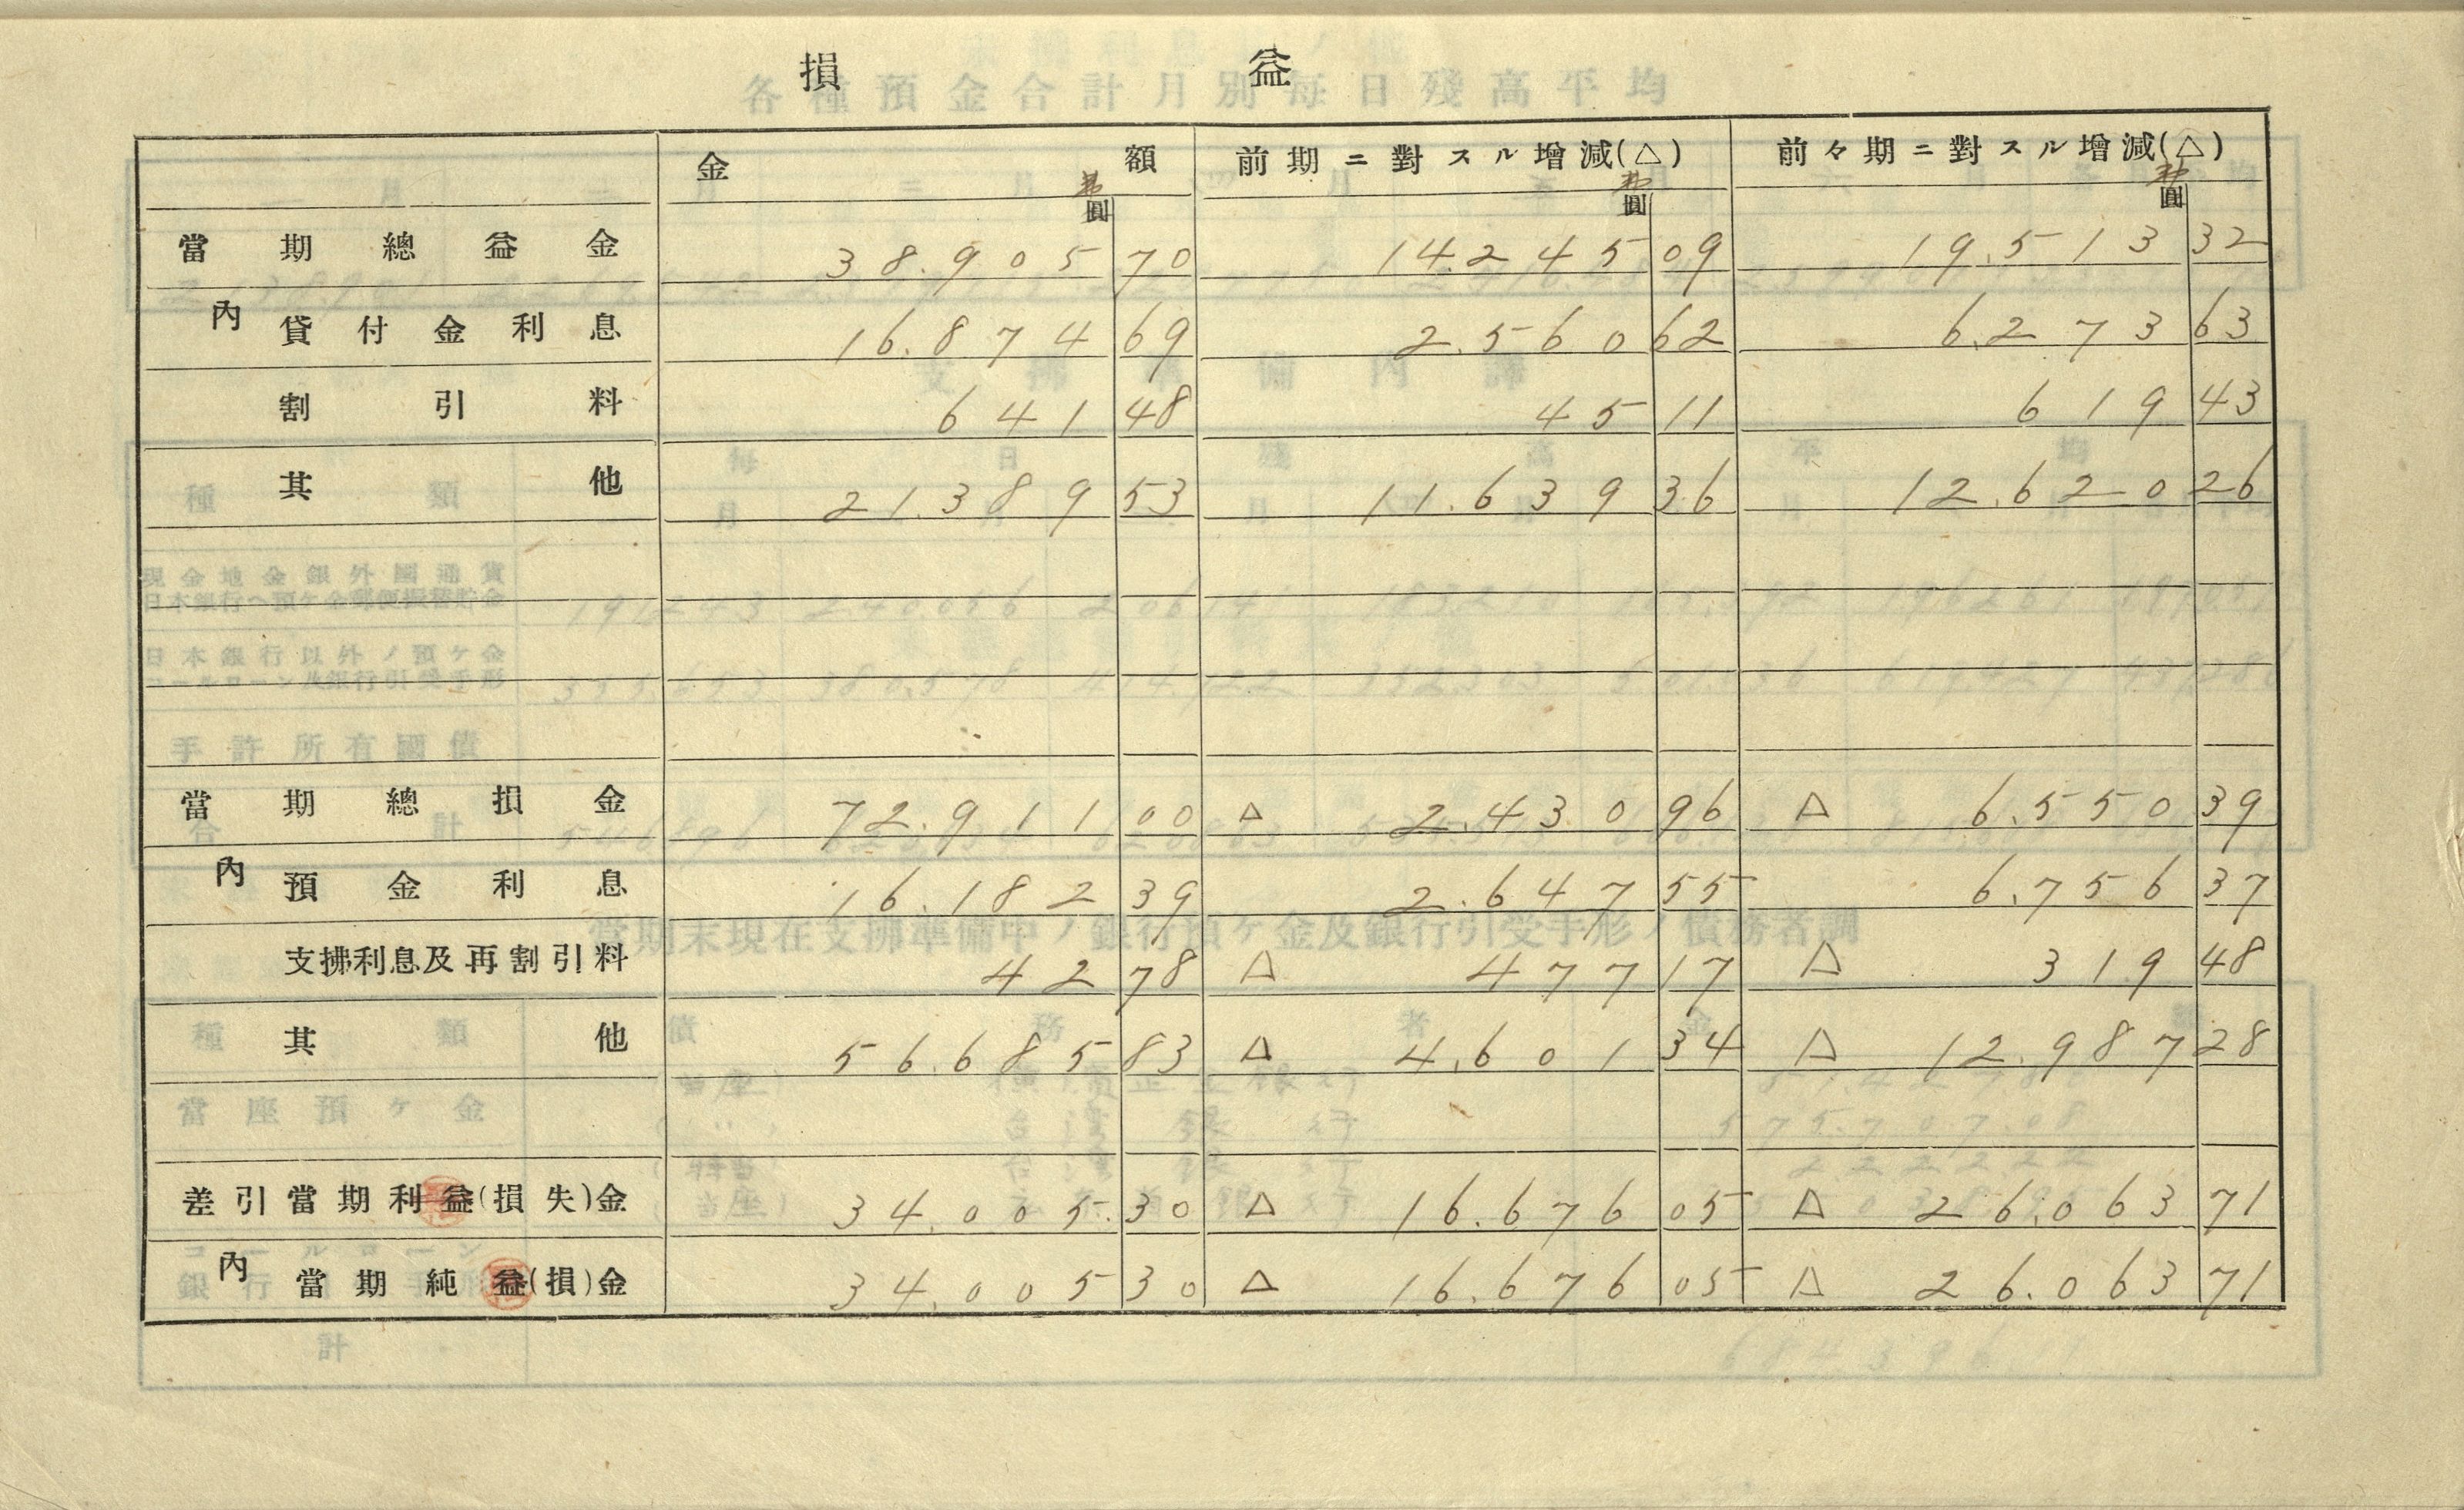 損益
金額 前期ニ對スル增減(△) 前々期ニ對スル增減(△)
圓 圓 圓
當期總益金 38.905 70 14.245 09 19.513 32
內 貸付金利息 16.874 69 2.560 62 6.273 63
割引料 641 48 45 11 619 43
其他 21.389 53 11.639 36 12.620 26
當期總損金 72.911 00 △ 2.430 96 △ 6.550 39
內 預金利息 16.182 39 2.647 55 6.756 37
支拂利息及再割引料 42 78 △ 477 17 △ 319 48
其他 56.685 83 △ 4.601 34 △ 12.987 28
差引當期利益(損失)金 34.005.30 △ 16.676 05 △ 26.063 71
內 當期純益(損)金 34.005 30 △ 16.676 05 △ 26.063 71